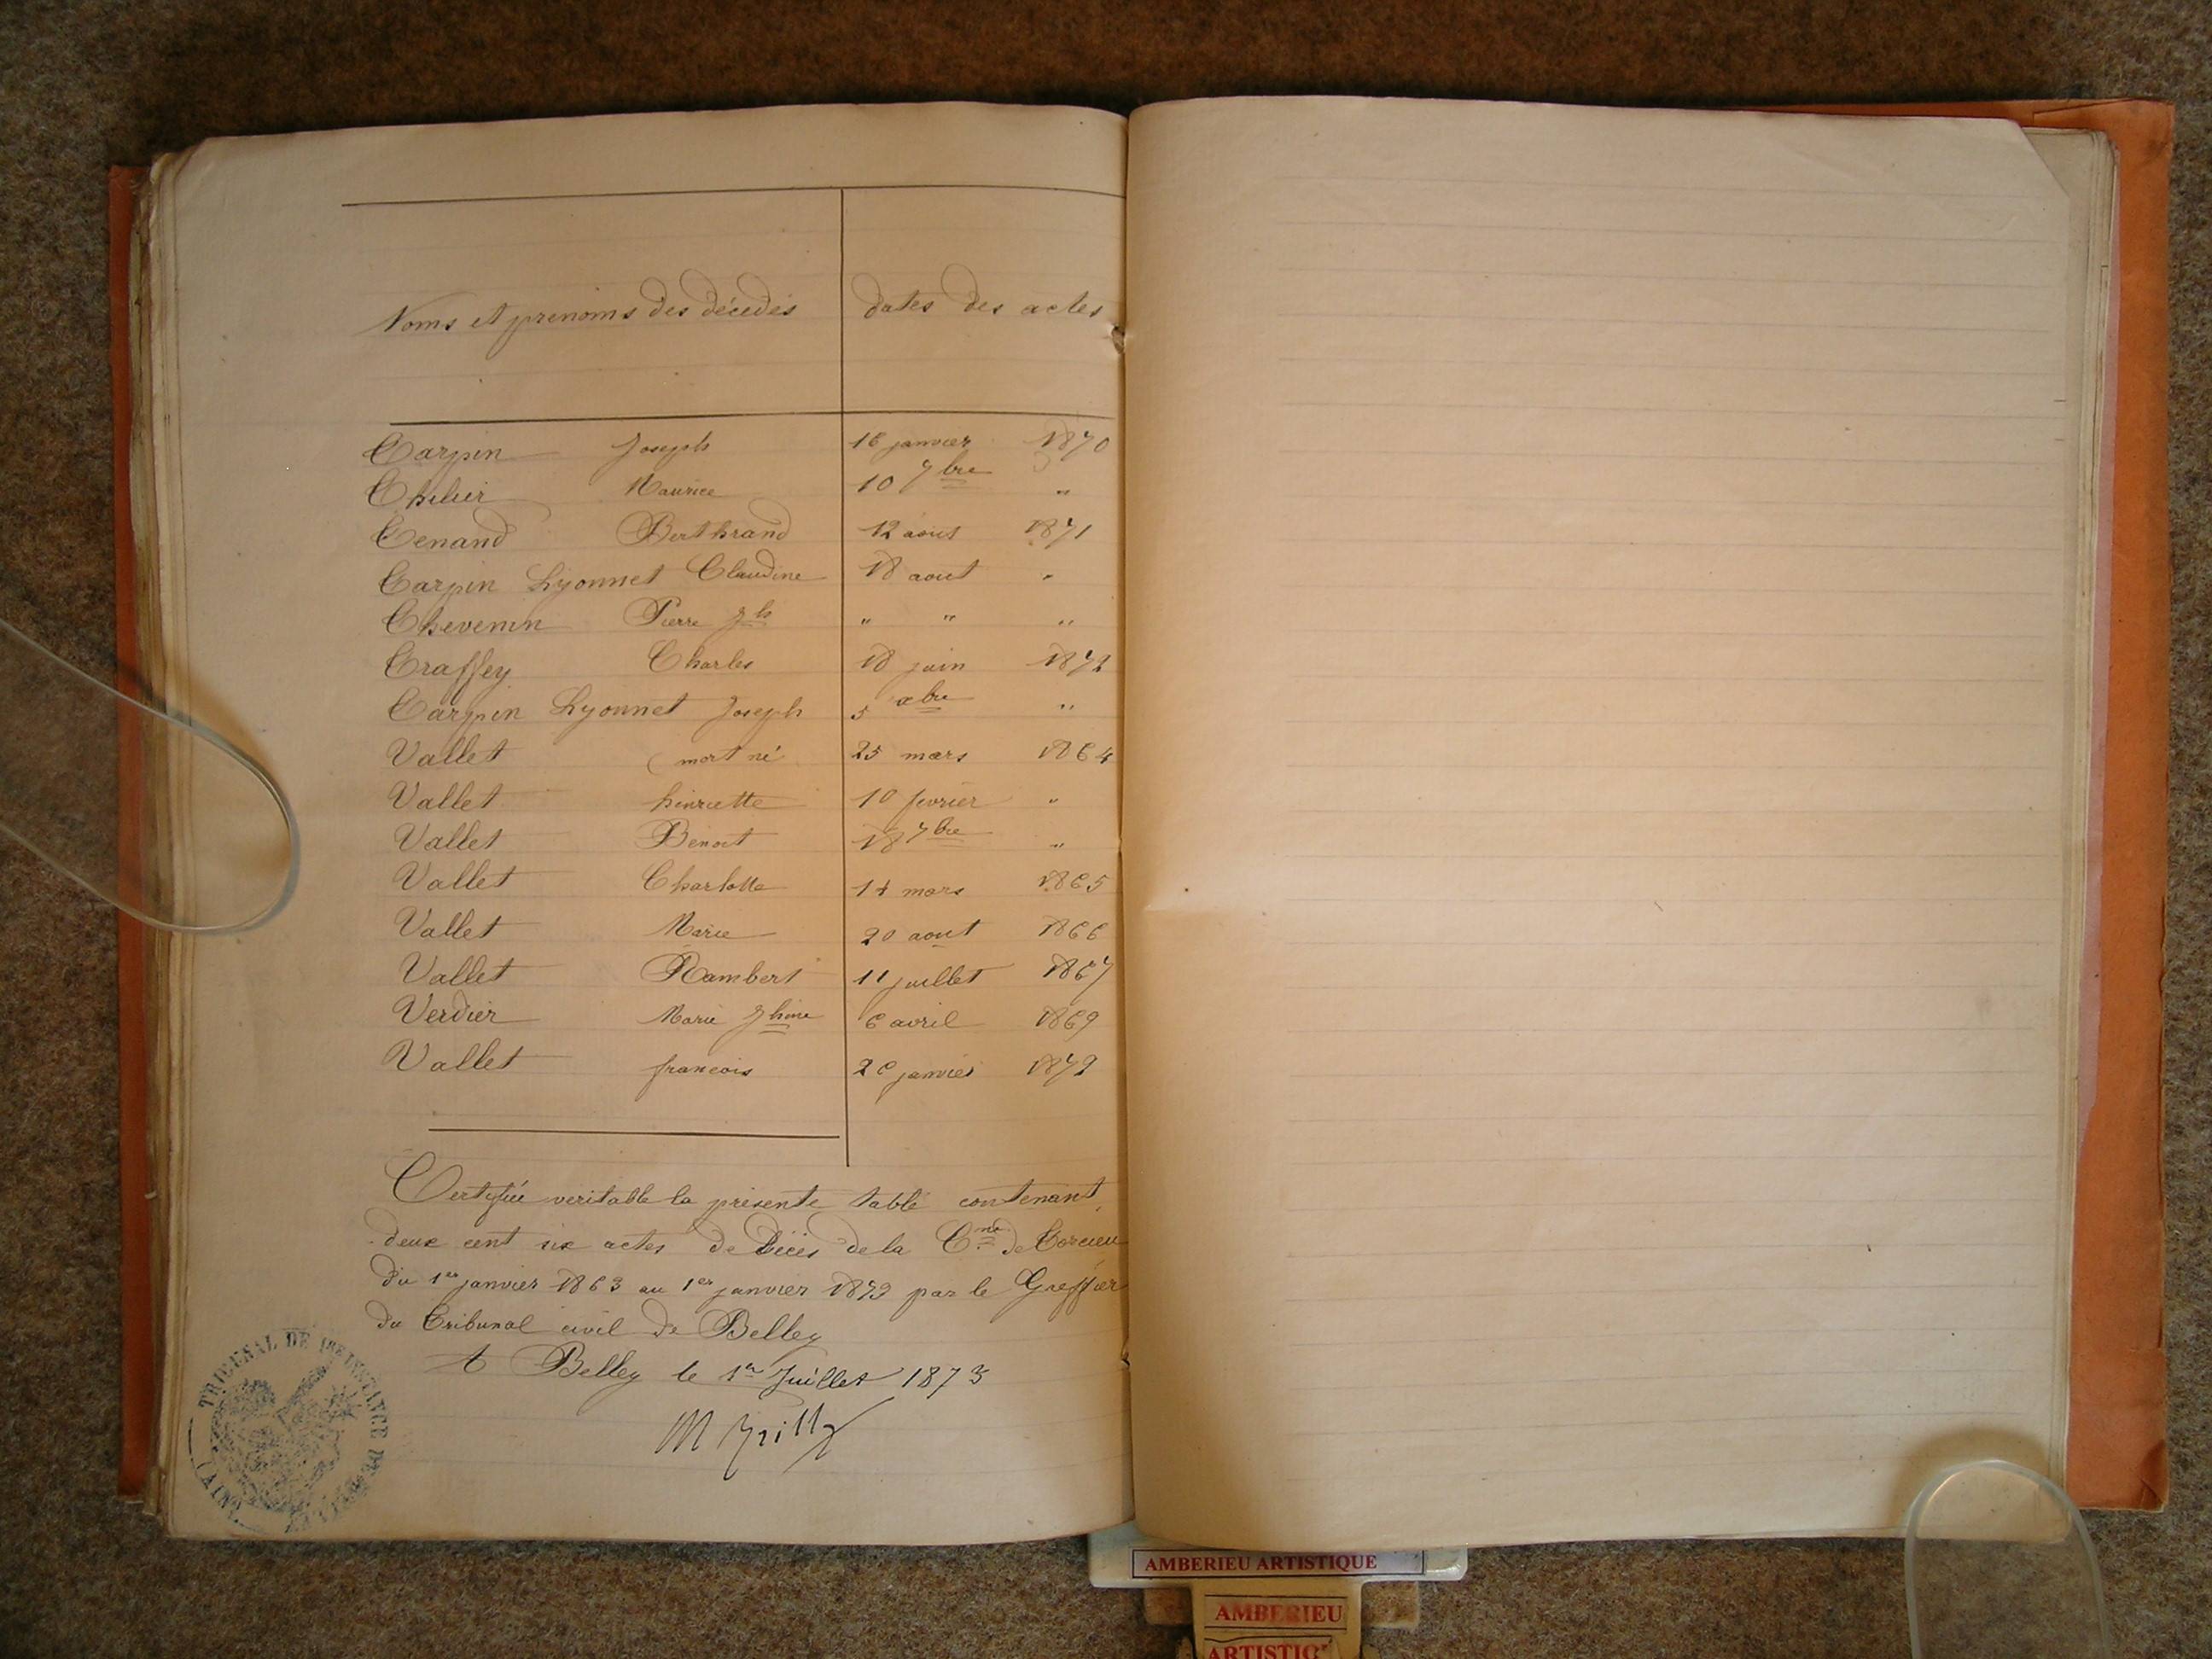 Noms et prenoms des décédés dates des actes
Tarpin Joseph 16 janvier 1870
Maurice 10 7bre "
Tenand Berthrand 12 aout 1871
Tarpin Lyonnet Claudine 18 aout "
Thevenin Pierre Jh " " "
Traffey Charles 18 juin 1872
Tarpin Lyonnet Joseph 5 xbre "
Vallet (mort né 25 mars 1864
Vallet henriette 10 fevrier "
Vallet Benoit 18 7bre "
Vallet Charlotte mars 1865
Vallet Marie 20 aout 1866
Vallet Rambert 11 juillet 1867
Verdier Marie Jhine 6 avril 1869
Vallet francois 26 janvier 1872
Certifiée veritable la présente table contenant,
deux cent six actes de Décès de la Cne de Torcieu
du 1er janvier 1863 au 1er janvier 1873 par le Greffier
du Tribunal civil de Belley
A Belley le 1er Juillet 1873
TRIBUNAL DE 1RE INSTANCE DE BELLEY (AIN)
AMBERIEU ARTISTIQUE
AMBERIEU